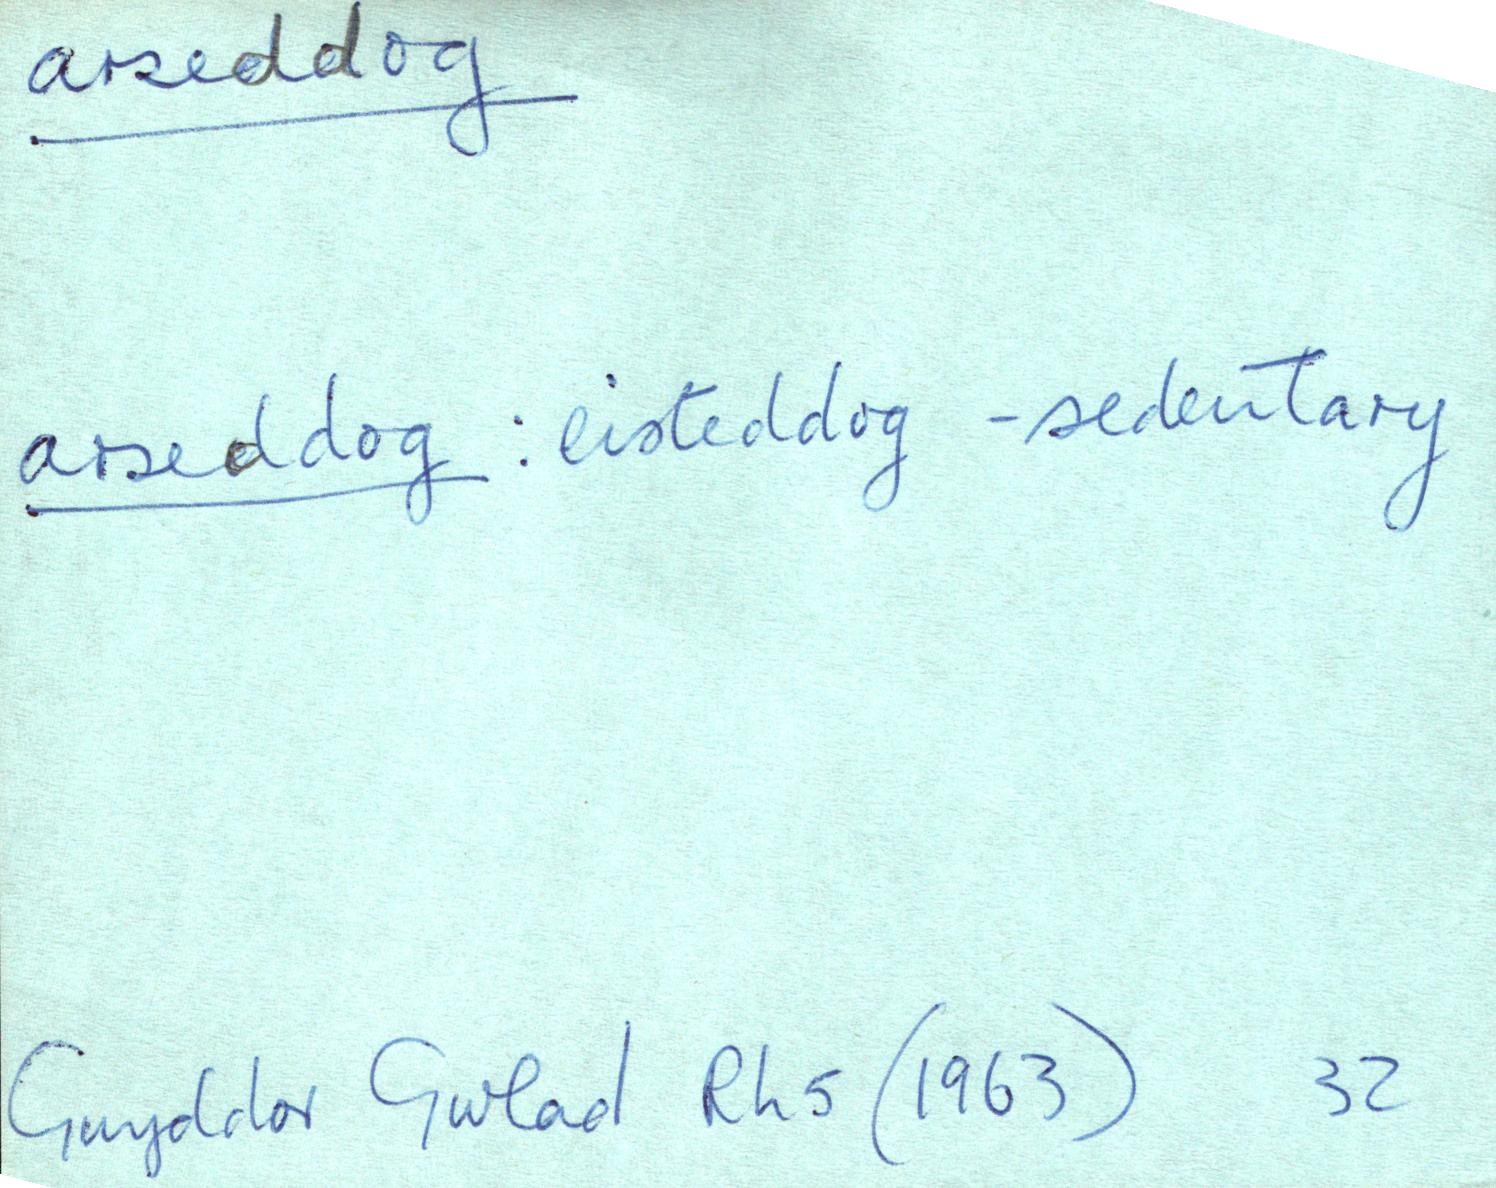 arseddog
arseddog : eisteddog - sedentary
Gwyddor Gwlad Rh5 (1963) 32